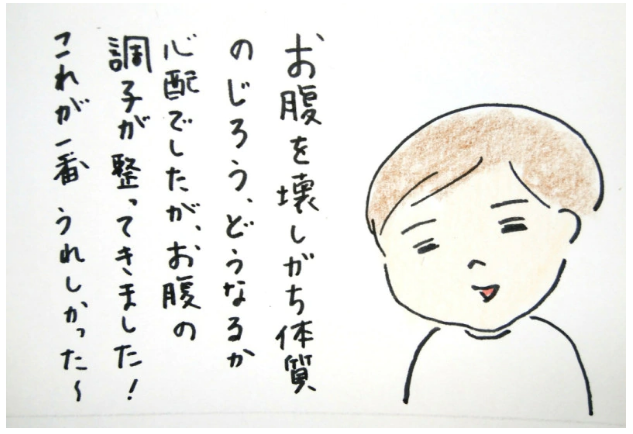 お腹を壊しがち体質
のじろう、どうなるか
心配でしたが、お腹の
調子が整ってきました!
これが一番うれしかった〜